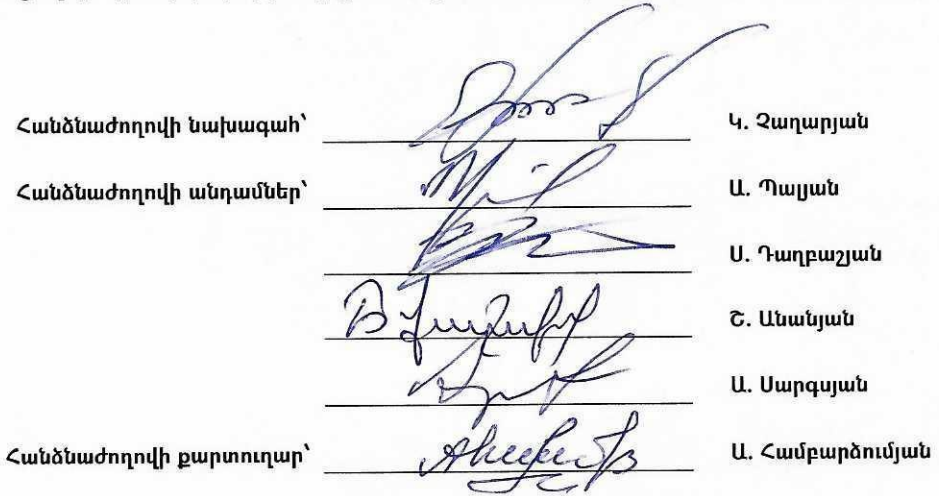 Հանձնաժողովի նախագահ՝ Կ. Չաղարյան
Հանձնաժողովի անդամներ՝ Ա. Պալյան
Ս. Դաղբաշյան
Շ. Անանյան
Ա. Սարգսյան
Հանձնաժողովի քարտուղար՝ Ա. Համբարձումյան